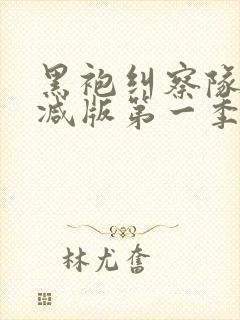 黑袍纠察队
减版第一季
林尤奮